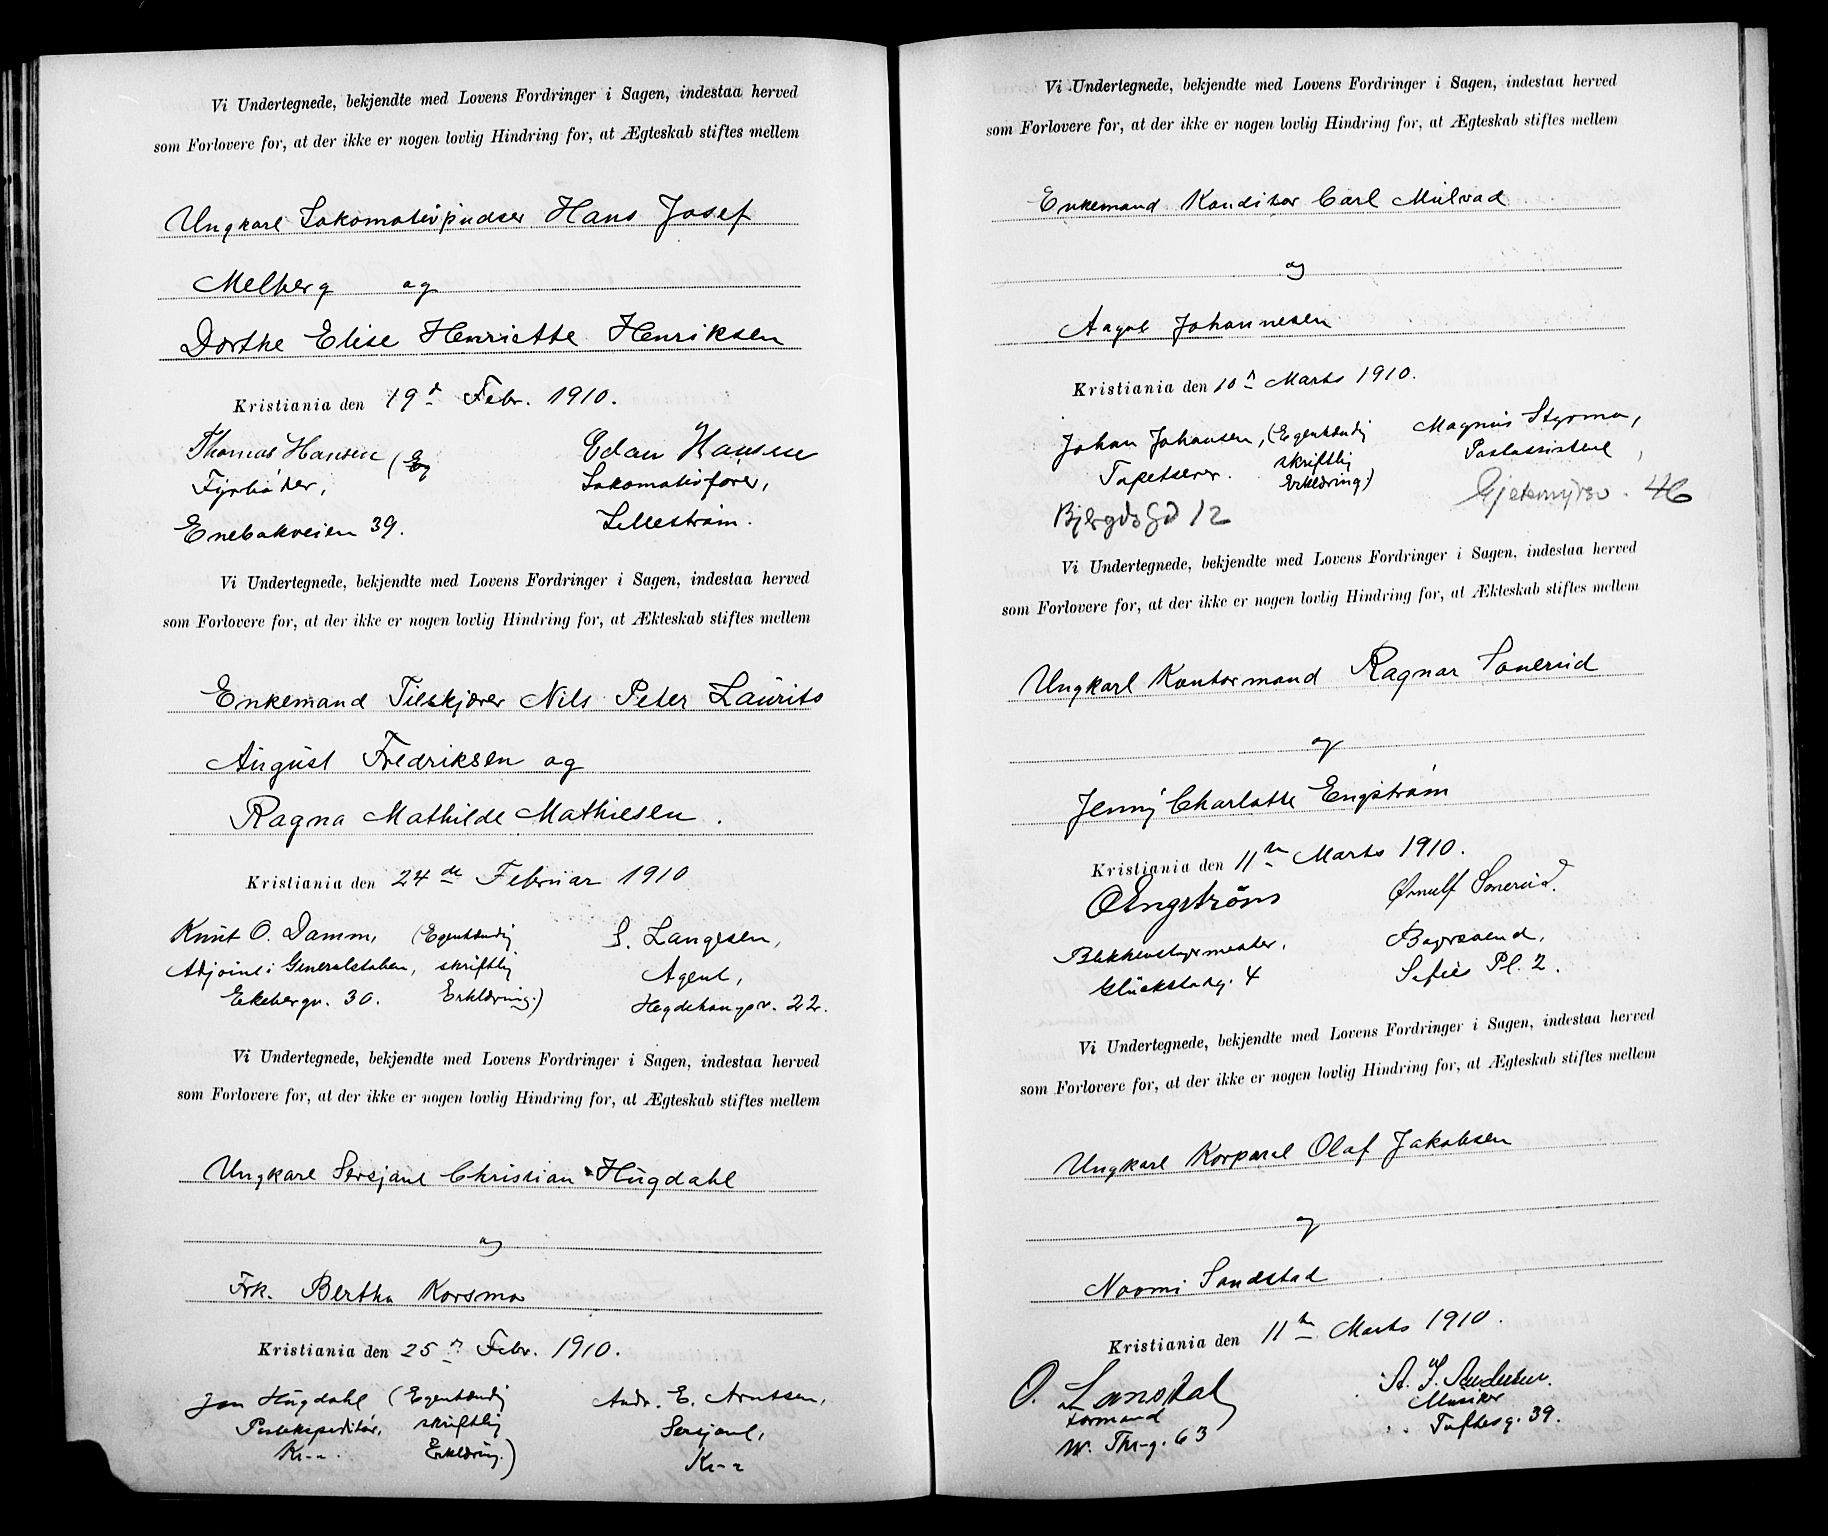 Vi Undertegnede, bekjendte med Lovens Fordringer i Sagen, indestaa herved
som Forlovere for, at der ikke er nogen lovlig Hindring for, at Ægteskab stiftes mellem
Ungkarl Lokomotivpudser Hans Josef
Melberg og
Dorthe Elise Henriette Henriksen
Kristiania den 19d Febr. 1910.
Thomas Hansen
Edan Hansen
Fyrbøder,
Lokomotivfører,
Enebakveien 39.
Lillestrøm.
Vi Undertegnede, bekjendte med Lovens Fordringer i Sagen, indestaa herved
som Forlovere for, at der ikke er nogen lovlig Hindring for, at Ækteskab stiftes mellem
Enkemand Tilskjærer Nils Peter Laurits
August Fredriksen og
Ragna Mathilde Mathiesen.
Kristiania den 24de Februar 1910
Knut O. Damm, (Egenhændig
S. Langesen,
Adjoint i Generalstaben, skriftlig
Agent,
Ekebergv. 30. Erklæring.)
Hegdehaugsv. 22.
Vi Undertegnede, bekjendte med Lovens Fordringer i Sagen, indestaa herved
som Forlovere for, at der ikke er nogen lovlig Hindring for, at Ægteskab stiftes mellem
Ungkarl Sersjant Christian Hugdahl
og
Frk. Bertha Korsmo
Kristiania den 25 Febr. 1910.
Jon Hugdahl (Egenhændig
Andr. E. Arntsen,
Postekspeditør, skriftlig
Sersjant,
Kr-a. Erklæring.)
Kr-a
Vi Undertegnede, bekjendte med Lovens Fordringer i Sagen, indestaa herved
som Forlovere for, at der ikke er nogen lovlig Hindring for, at Ægteskab stiftes mellem
Enkemand Konditor Carl Milvad
og
Aagot Johannesen
Kristiania den 10 Marts 1910.
Johan Johansen, (Egenhændig
Magnus Styrmo,
Tapetserer. skriftlig Erklæring.)
Postassistent,
Bjergdsgd 12
Gjetemyrsv. 46
Vi Undertegnede, bekjendte med Lovens Fordringer i Sagen, indestaa herved
som Forlovere for, at der ikke er nogen lovlig Hindring for, at Ækteskab stiftes mellem
Ungkarl Kontormand Ragnar Sonerud
og
Jenny Charlotte Engstrøm
Kristiania den 11te Marts 1910.
O Engstrøm
Ørnulf Sonerud.
Blikkenslagermester,
Bagersvend,
Glückstadg. 4
Sofies Pl. 2.
Vi Undertegnede, bekjendte med Lovens Fordringer i Sagen, indestaa herved
som Forlovere for, at der ikke er nogen lovlig Hindring for, at Ægteskab stiftes mellem
Ungkarl Korporal Olaf Jakobsen
og
Noomi Sandstad
Kristiania den 11te Marts 1910.
O. Lonstal
Formand
Musiker
W. Thr-g. 63
Toftesg. 39.